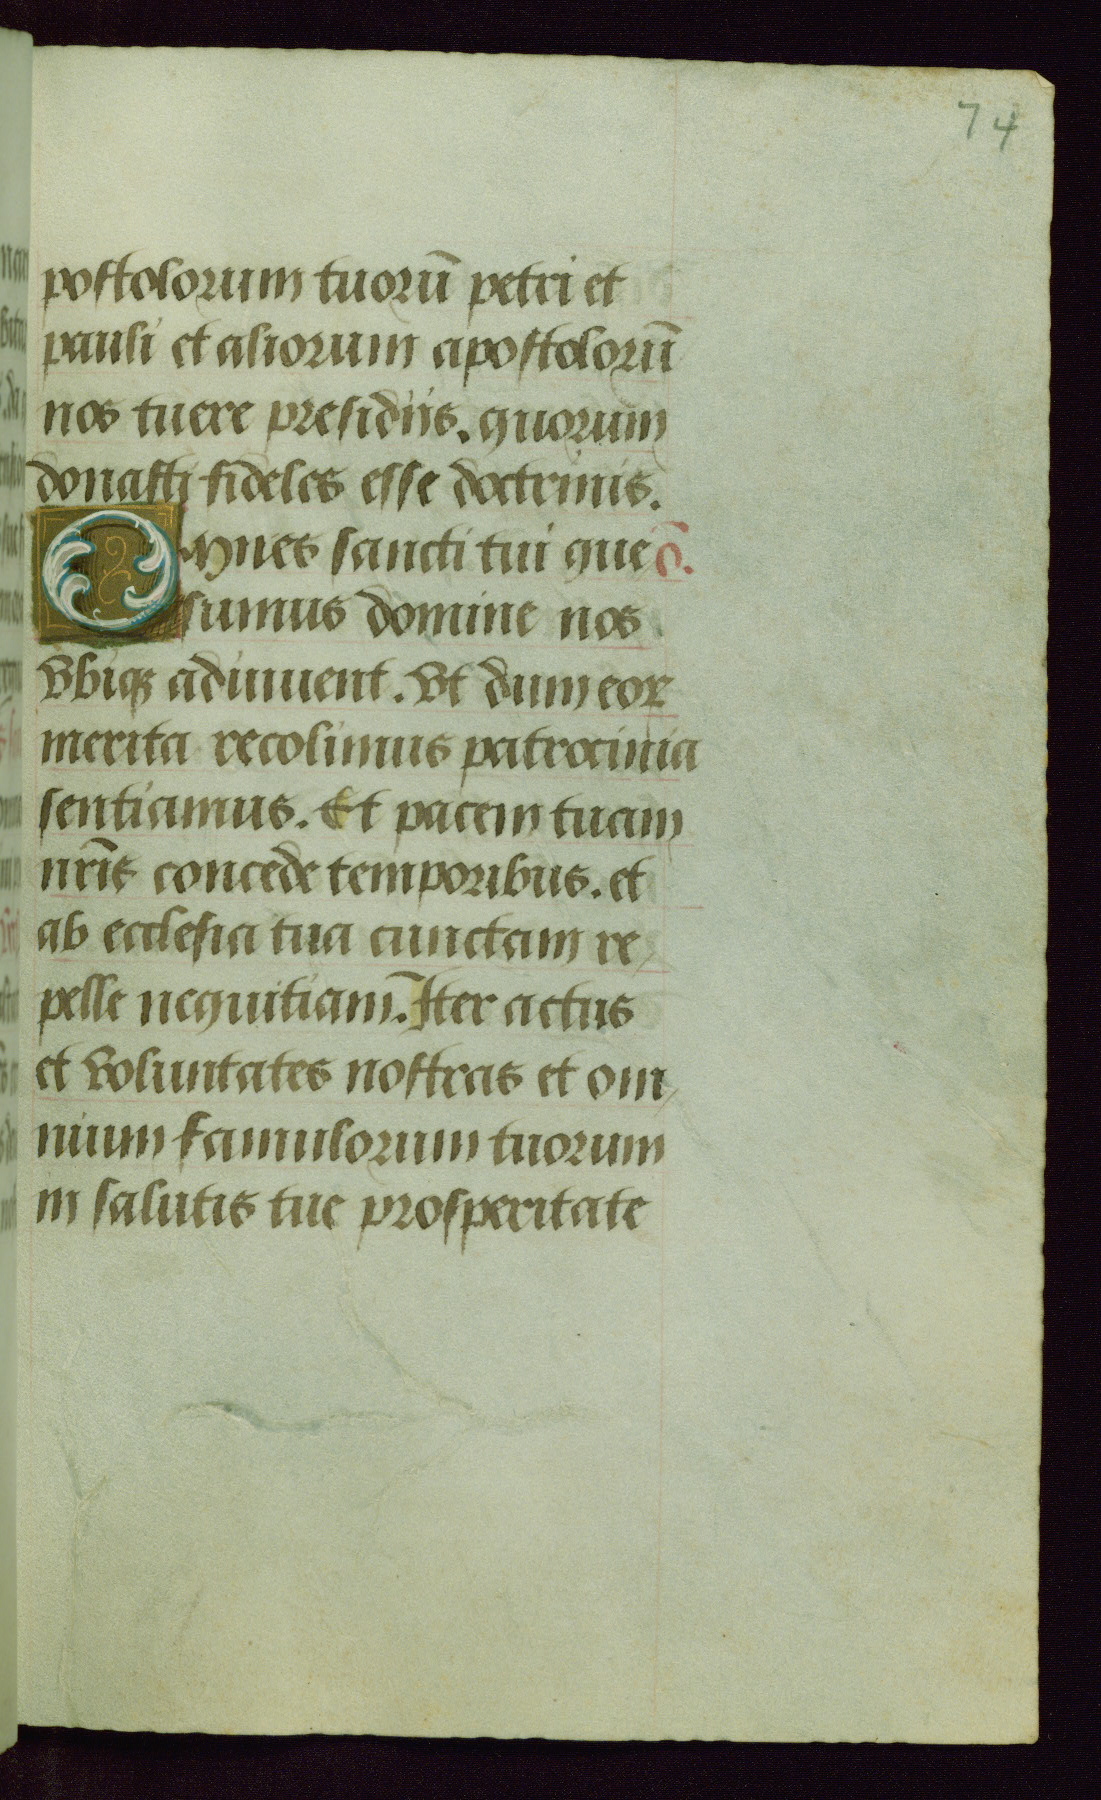 74
postolorum tuorū petri et
pauli et aliorum apostolorū
nos tuere presidiis. quorum
donasti fideles esse doctrinis.
Omnes sancti tui que ō.
sumus domine nos
Vbiqꝫ adiuuent. Vt dum eoꝝ
merita recolimus patrocinia
sentiamus. Et pacem tuam
nr̄is concede temporibus. et
ab ecclesia tua cunctam re
pelle nequitiam. Iter actus
et voluntates nostras et om
nium famulorum tuorum
in salutis tue prosperitate